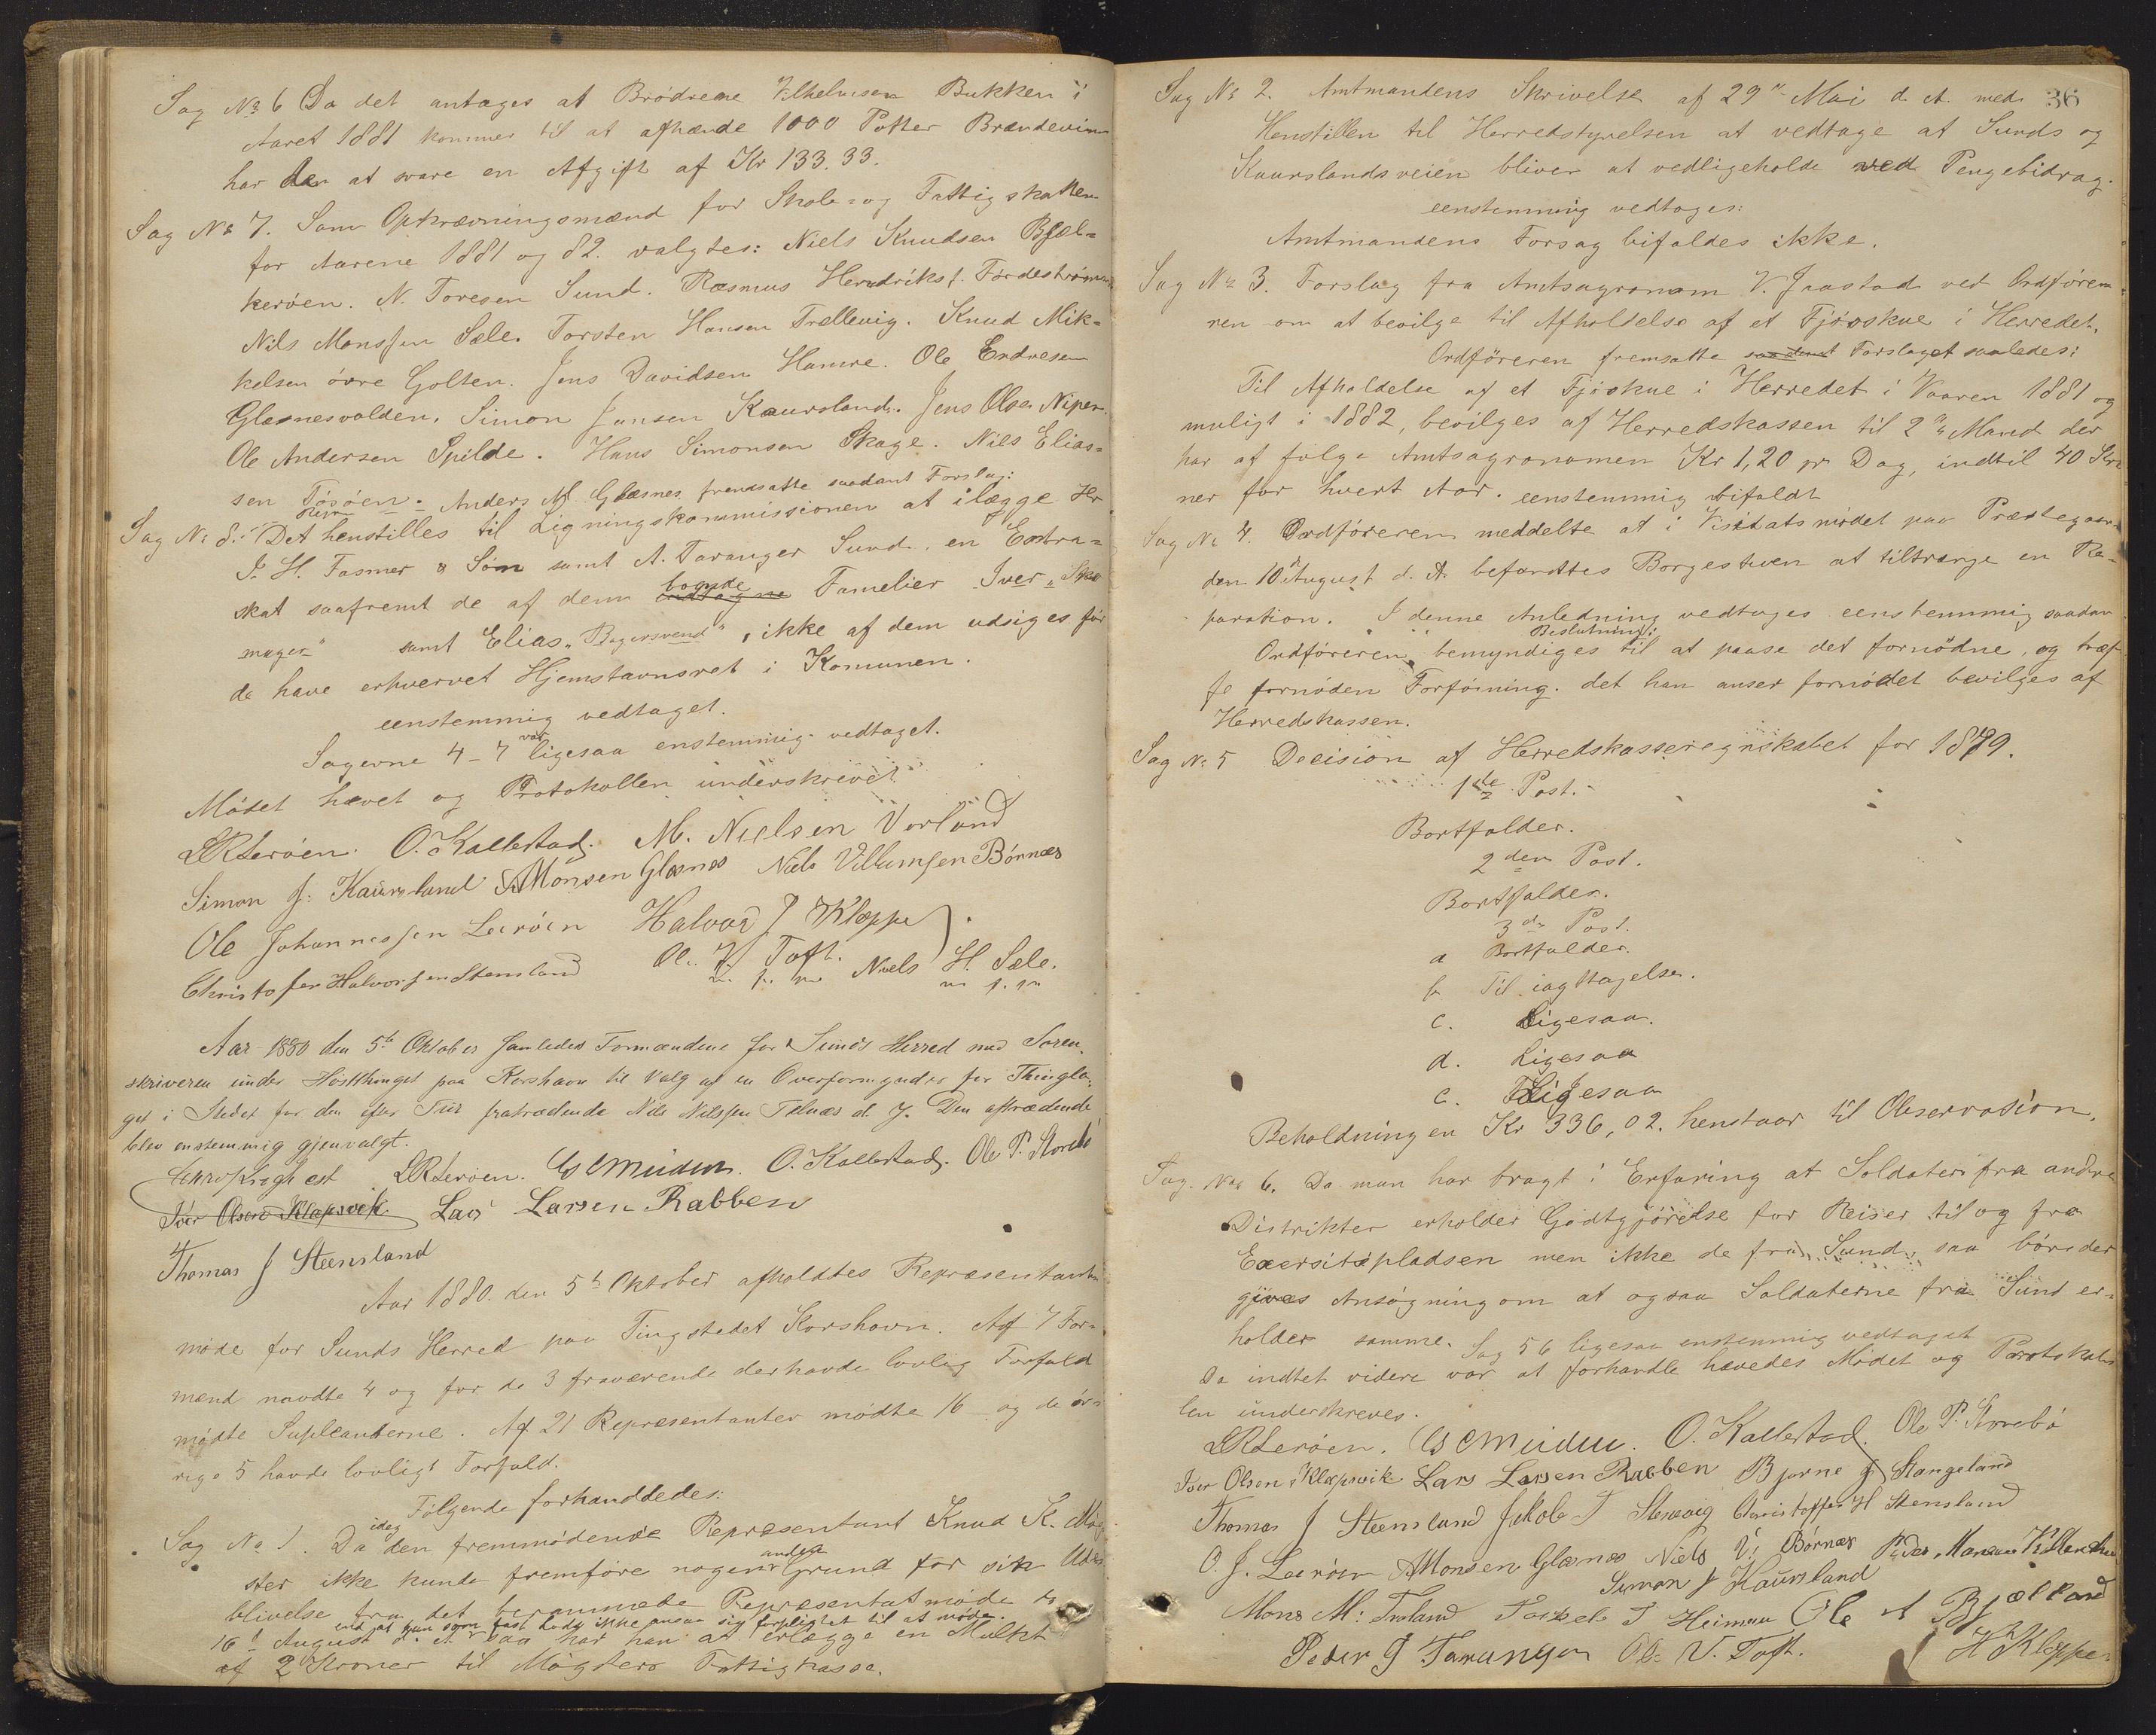 Sag No 6 Da det antages at Brödrene Vilhelmsen Bukken i
Aaret 1881 kommer til at afhænde 1000 Potter Brændeviin
har den at svare en Afgift af Kr 133.33.
Sag No 7. Som Opkrævningsmænd for Skole- og Fattigskatten
for Aarene 1881 og 82. valgtes: Niels Knudsen Bjæl-
keröen. N. Toresen Sund. Rasmus Hendriks. Förde
Nils Monssen Sæle. Torsten Hansen Trellevig. Knud Mik-
kelsen övre Golten. Jens Davidsen Hamre. Ole Endresen
Glæsnesvolden. Simon Jansen Kaursland. Jens Olsen Niper.
Ole Andersen Spilde. Hans Simonsen Skage. Niels Elias-
sen Tösöen. Anders M. Glæsnes fremsatte saadant Forslag:
Sag No 8. Det henstilles til Ligningskommissionen at ilægge Hr
J. H. Fasmer & Sön samt A. Taranger Sund, en Extra-
skat saafremt de af dem boende Familier Iver "Sko
mager" samt Elias "Bagersvend", ikke af dem udsiges för
de have erhvervet Hjemstavnsret i Komunen.
eenstemmig vedtaget.
Sagerne 4-7 var ligesaa enstemmig vedtaget.
Mödet hævet og Protokollen underskrevet
LRLeröen. O. Kallestad. M. Nielsen Vorland
Simon J: Kaursland AMonsen Glæsnes Niels Villumsen Börnæs
Ole Johannessen Leeröen Halvor J Kleppe
Christofer Halvorsen Stensland Ole J. Toft. Niels H. Sæle.
m. p. p. m p. p
Aar 1880 den 5te Oktober samledes Formændene for Sunds Herred med Soren-
skriveren under Höstthinget paa Korshavn til Valg af en Overformynder for Thingla-
get i Stedet for den efter Tur fratrædende Nils Nilssen Telnæs d. y. Den aftrædende
blev enstemmig gjenvalgt.
LRLeröen. O. Kallestad. Ole P. Storebö
Iver Olsen Klepsvik Lars Larsen Rabben
Thomas J Steensland
Aar 1880. den 5te Oktober afholdtes Repræsentant
möde for Sunds Herred paa Tingstedet Korshavn. Af 7 For-
mænd mödte 4 og for de 3 fraværende der havde lovlig Forfald
mödte Supleanterne. Af 21 Repræsentanter mödte 16 og de öv-
rige 5 havde lovligt Forfald.
Fölgende forhandledes:
Sag No 1. Da den idag fremmödende Repræsentant Knud K. Mög
ster ikke kunde fremföre nogen anden Grund for sin Ude
blivelse fra det berammede Repræsentatmöde den
end at han som fast Lods ikke ansaa sig forpligtet til at möde.
16de August d. A. saa har han at erlægge en Mulkt
af 2 Kroner til Mögsters Fattigkasse.
36
Sag No 2. Amtmandens Skrivelse af 29de Mai d. A. med
Henstillen til Herredstyrelsen at vedtage at Sunds og
Kaurslandsveien bliver at vedligeholde ved Pengebidrag.
eenstemmig vedtages:
Amtmandens Forsag bifaldes ikke.
Sag No 3. Forslag fra Amtsagronom V. Jaastad ved Ordföre
ren om at bevilge til Afholdelse af et Fjöskue i Herredet.
Ordföreren fremsatte saadant Forslaget saaledes:
Til Afholdelse af et Fjöskue i Herredet i Vaaren 1881 og
muligt i 1882, bevilges af Herredskassen til 2de Mænd der
har at fölge Amtsagronomen Kr 1,20 pr Dag, indtil 40 Kro
ner for hvert Aar. eenstemmig bifaldt
Sag No 4. Ordföreren meddelte at i Visitatsmödet paa Præstegaar
den 10de August d. A. befandtes Borgestuen at tiltrænge en Re-
paration. I denne Anledning vedtages eenstemmig saadan
Beslutning:
Ordföreren bemyndiges til at paase det fornödne, og træf
fe fornöden Forföining. det han anser fornödet bevilges af
Herredskassen.
Sag No 5 Decision af Herredskasseregnskabet for 1879.
1ste Post.
Bortfalder.
2den Post.
Bortfalder.
3de Post.
a Bortfalder.
b Til iagttagelse.
c. Ligesaa.
d. Ligesaa
e. Ligesaa
Beholdningen Kr 336,02. henstaar til Observation.
Sag. No 6. Da man har bragt i Erfaring at Soldater fra andre
Distrikter erholder Godtgjörelse for Reiser til og fra
Exersitspladsen men ikke de fra Sund, saa börs der
gives Ansögning om at ogsaa Soldaterne fra Sund er-
holder samme. Sag 5 6 ligesaa enstemmig vedtaget
Da indtet videre var at forhandle hævedes Mödet og Protokol
len underskreves.
LRLeröen. O. Kallestad. Ole P. Storebö
Iver Olsen Klepsvik Lars Larsen Rabben Bjarne J Stangeland
Thomas J Steensland Jakob T Steinvig Christoffer H Stensland
O. J. Leeröen AMonsen Glæsnes Niels V: Börnæs Peder Monsen
Simon J Kaursland
Mons M: Troland Torkel T Heiman Ole A Bjelland
Peder J Taranger Ole J. Toft. H Kleppe